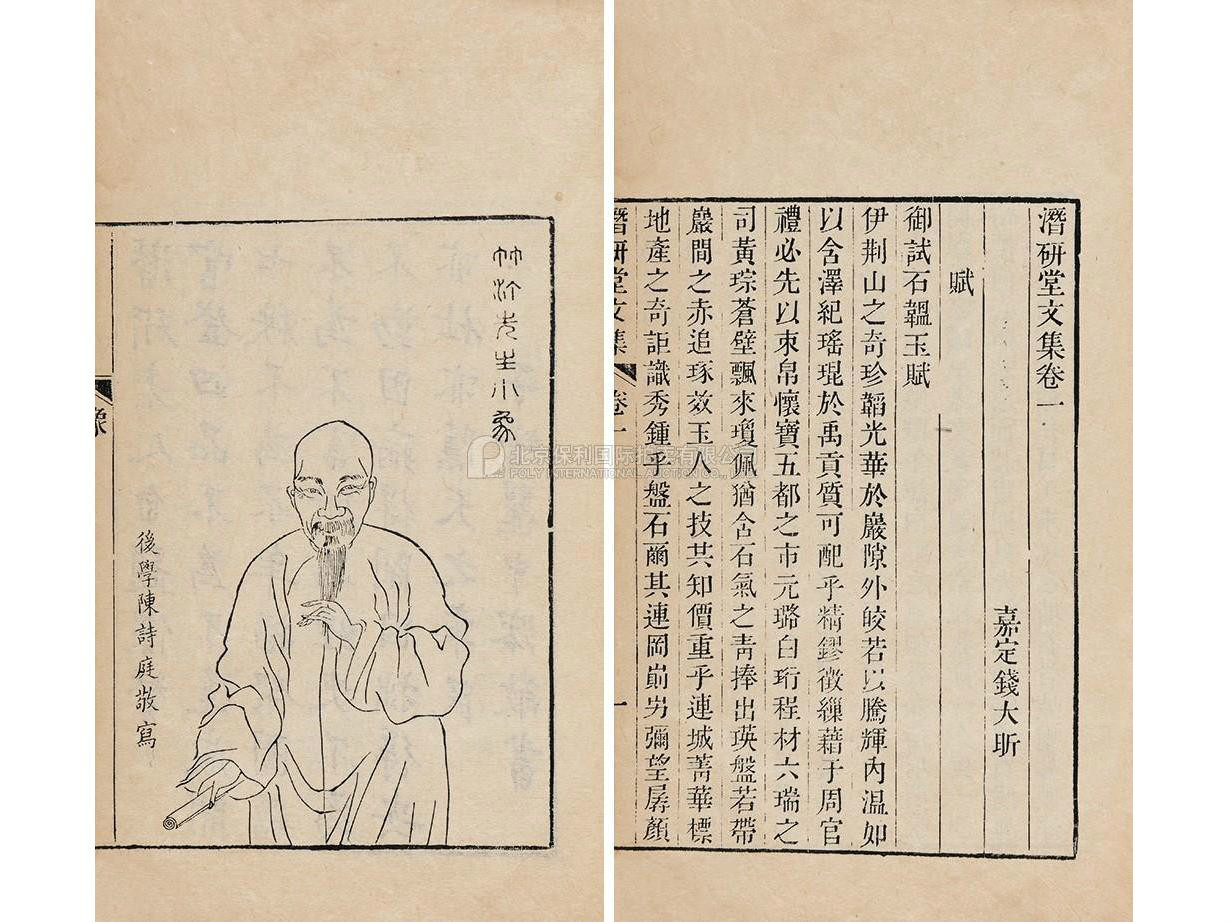 潛研堂文集卷一
嘉定錢大昕
賦
御試石韞玉賦
伊荆山之奇珍韜光華於巖隙外皎若以騰輝內温如
以含澤紀瑤琨於禹貢質可配乎精鏐徵繅藉于周官
禮必先以束帛懷寶五都之市元璐白珩程材六瑞之
司黃琮蒼璧飄來瓊佩猶含石氣之青捧出瑛盤若帶
巖間之赤追琢效玉人之技共知價重乎連城菁華標
地產之奇詎識秀鍾乎盤石爾其連岡崱屴彌望孱顏
潛研堂文集 卷一 一
竹汀先生小象
後學陳詩庭敬寫
象
北京保利国际拍卖有限公司
POLY INTERNATIONAL AUCTION CO.,